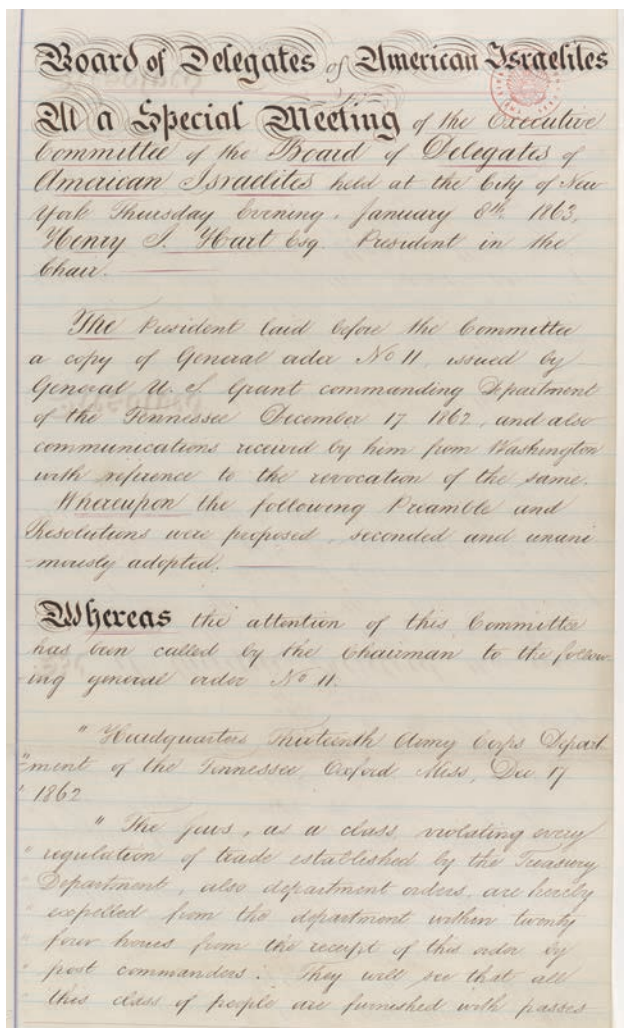 Board of Delegates of American Israelites
At a Special Meeting of the Executive
Committee of the Board of Delegates of
American Israelites held at the City of New
York Thursday Evening, January 8th 1863,
Henry I. Hart Esq. President in the
Chair.
The President laid before the Committee
a copy of General order No 11, issued by
General U. S. Grant commanding Department
of the Tennessee December 17 1862, and also
communications received by him from Washington
with reference to the revocation of the same.
Whereupon the following Preamble and
Resolutions were proposed, seconded and unani
-mously adopted.
Whereas the attention of this Committee
has been called by the Chairman to the follow-
ing general order No 11.
" Headquarters, Thirteenth Army Corps Depart-
"ment of the Tennessee Oxford Miss, Dec 17
" 1862
" The Jews, as a class, violating every
" regulation of trade established by the Treasury
" Department, also department orders, are hereby
" expelled from the department within twenty
" four hours from the receipt of this order by
" post commanders. They will see that all
" this class of people are furnished with passes